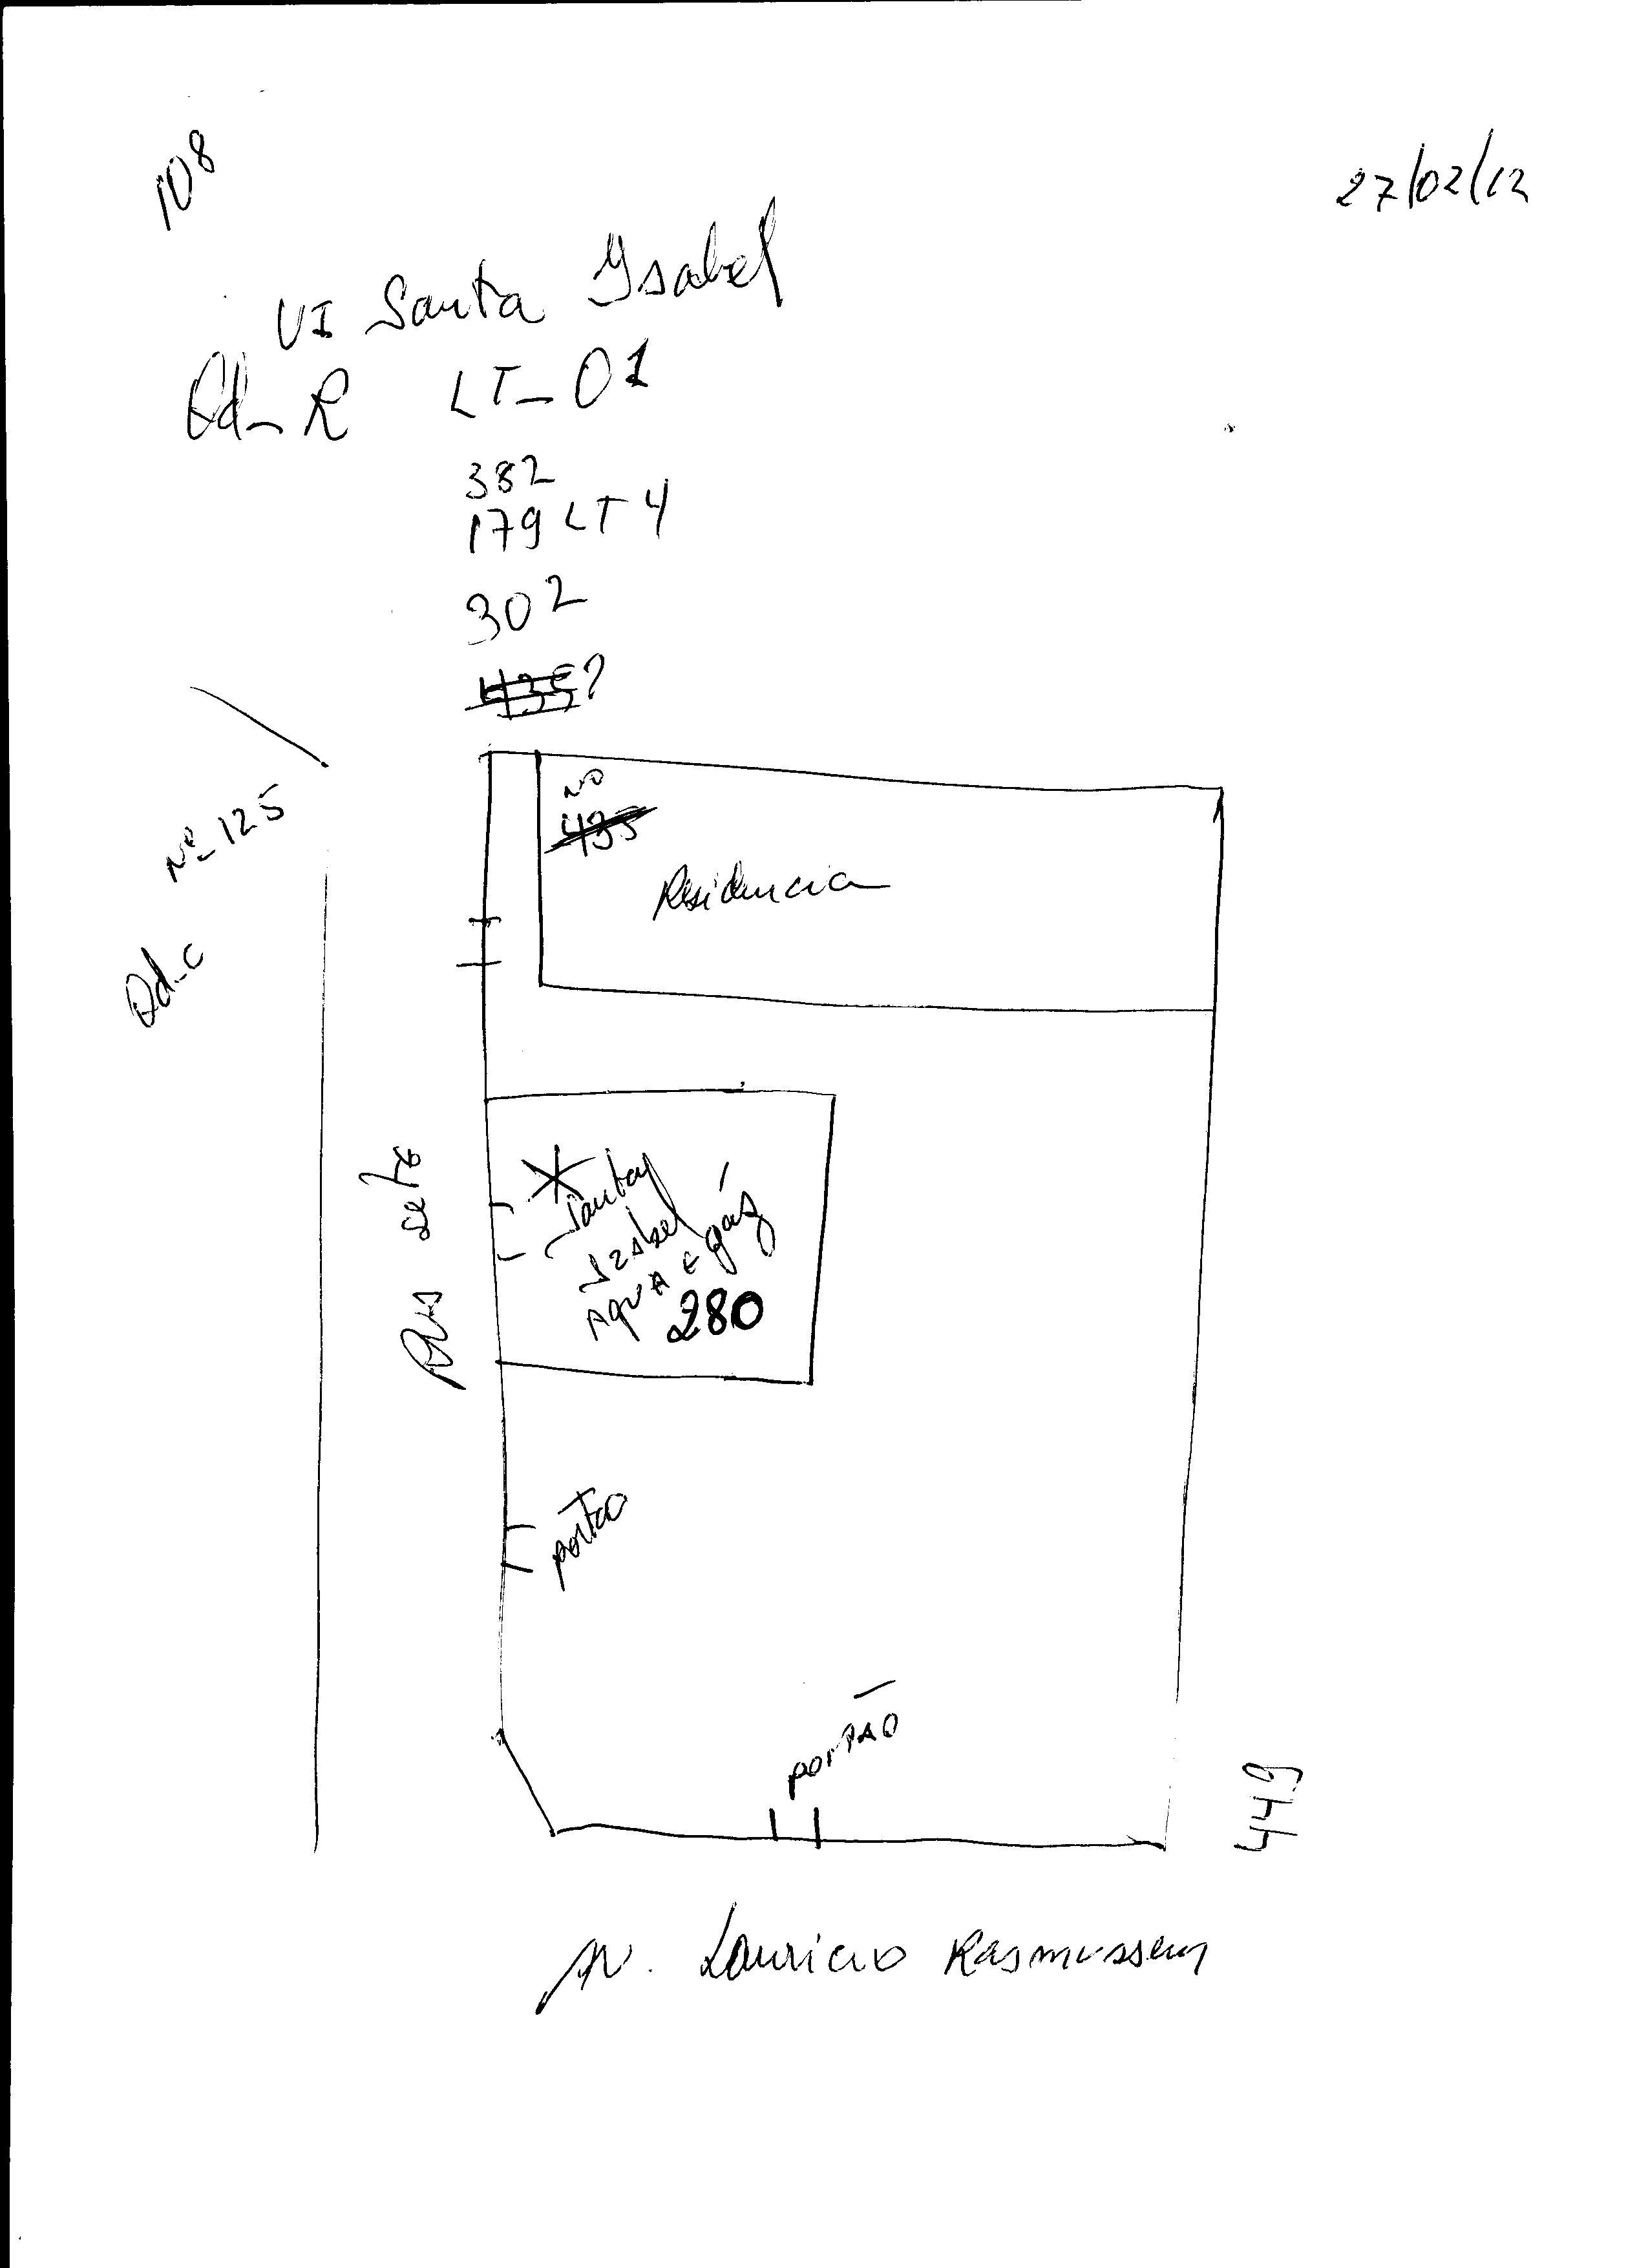 108
27/02/12
VI Santa Ysabel
Qd_ R LT_ 01
382
179 LT 4
302
435?
Nº_ 125
Qd_c
Nº
435
Residencia
Rua sete
Izabel
AQUA E gáz
280
portão
portão
449
AV. Lauricio Rasmussem